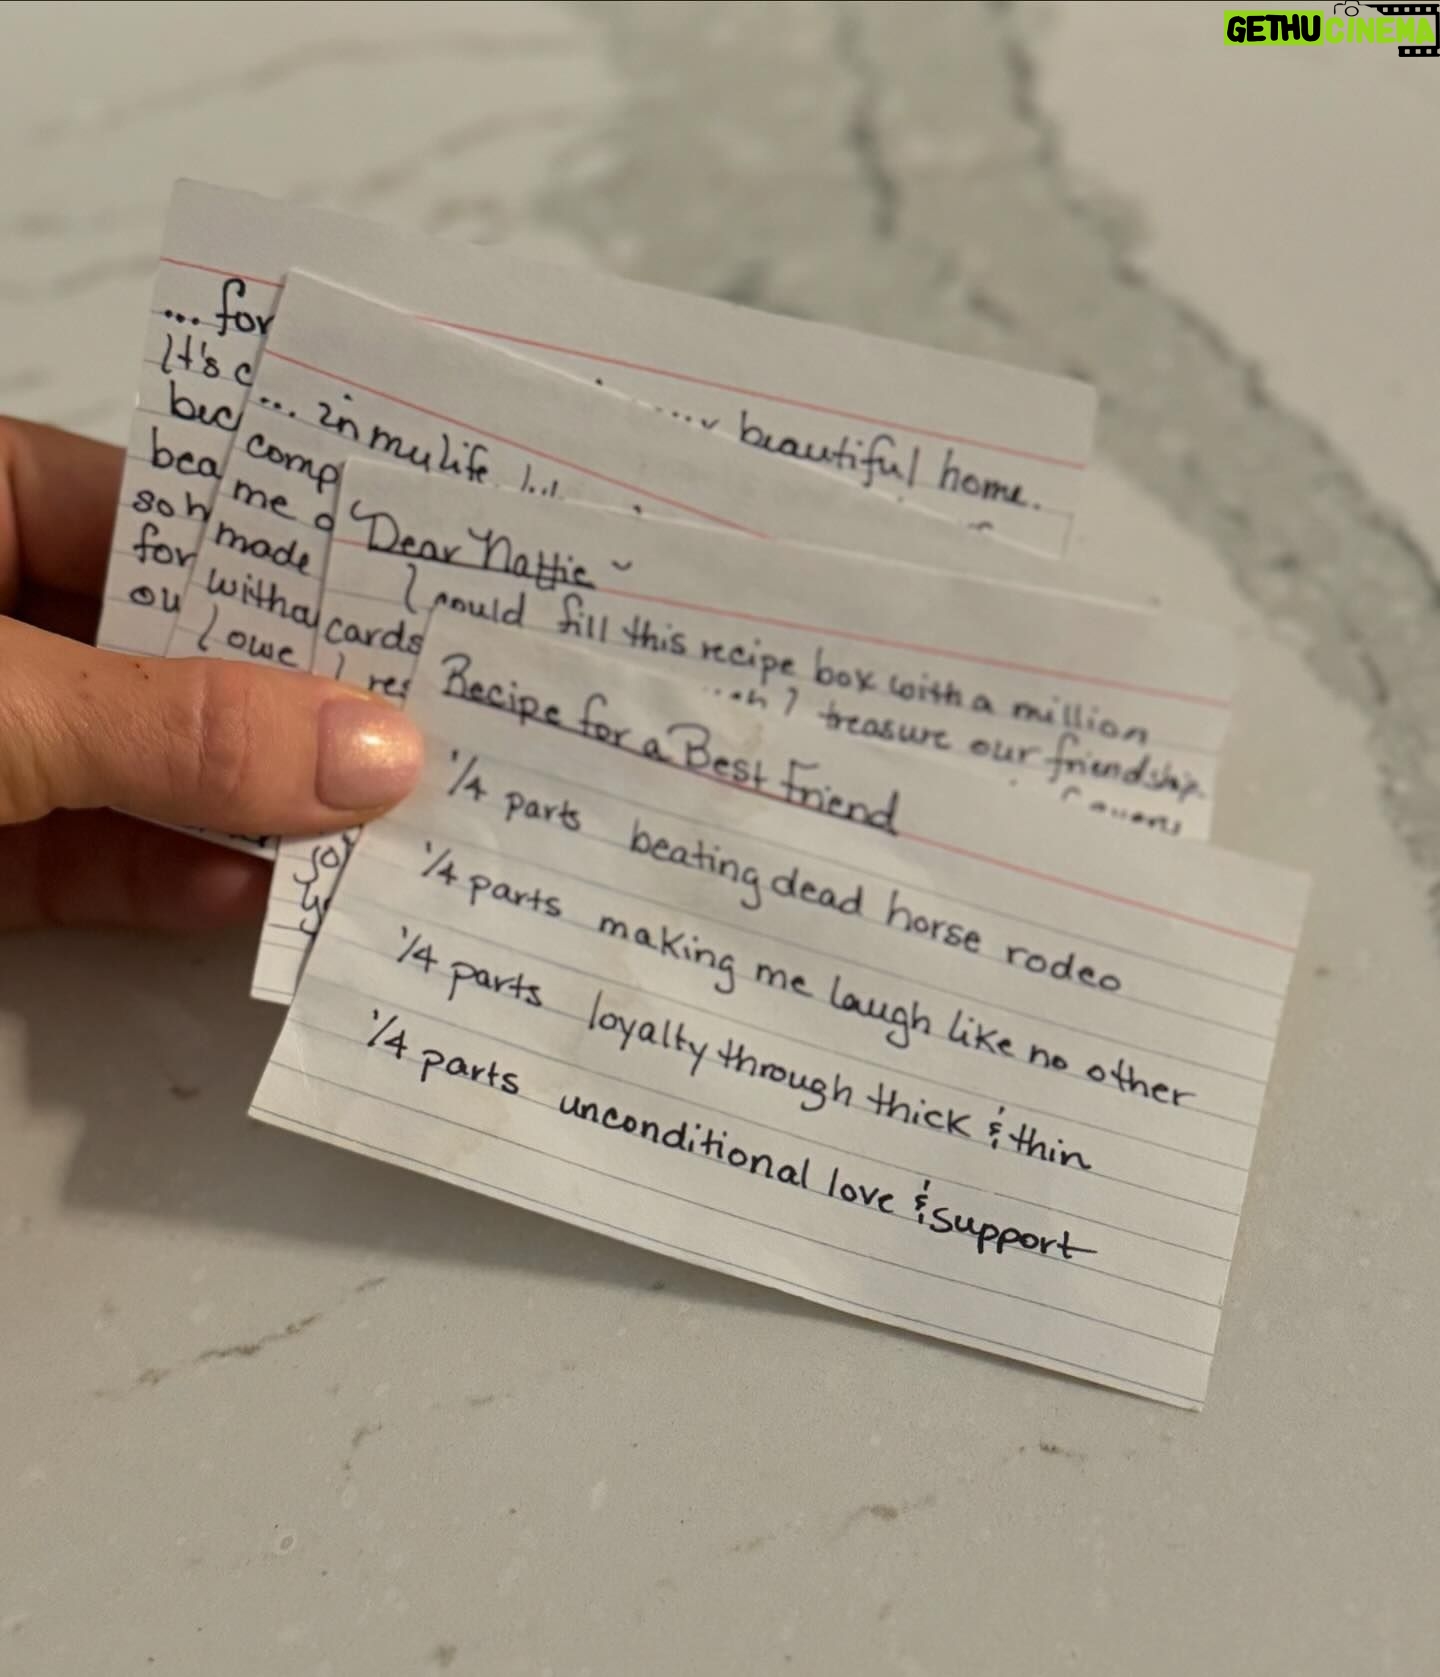 GETHU CINEMA
... for
It's
beautiful home.
bea
so
for
ou
... in my life
comp
me
made
with a
I owe
Dear Nattie ~
I could fill this recipe box with a million
cards treasure our friendship.
I
Recipe for a Best Friend
1/4 parts beating dead horse rodeo
1/4 parts making me laugh like no other
1/4 parts loyalty through thick & thin
1/4 parts unconditional love & support